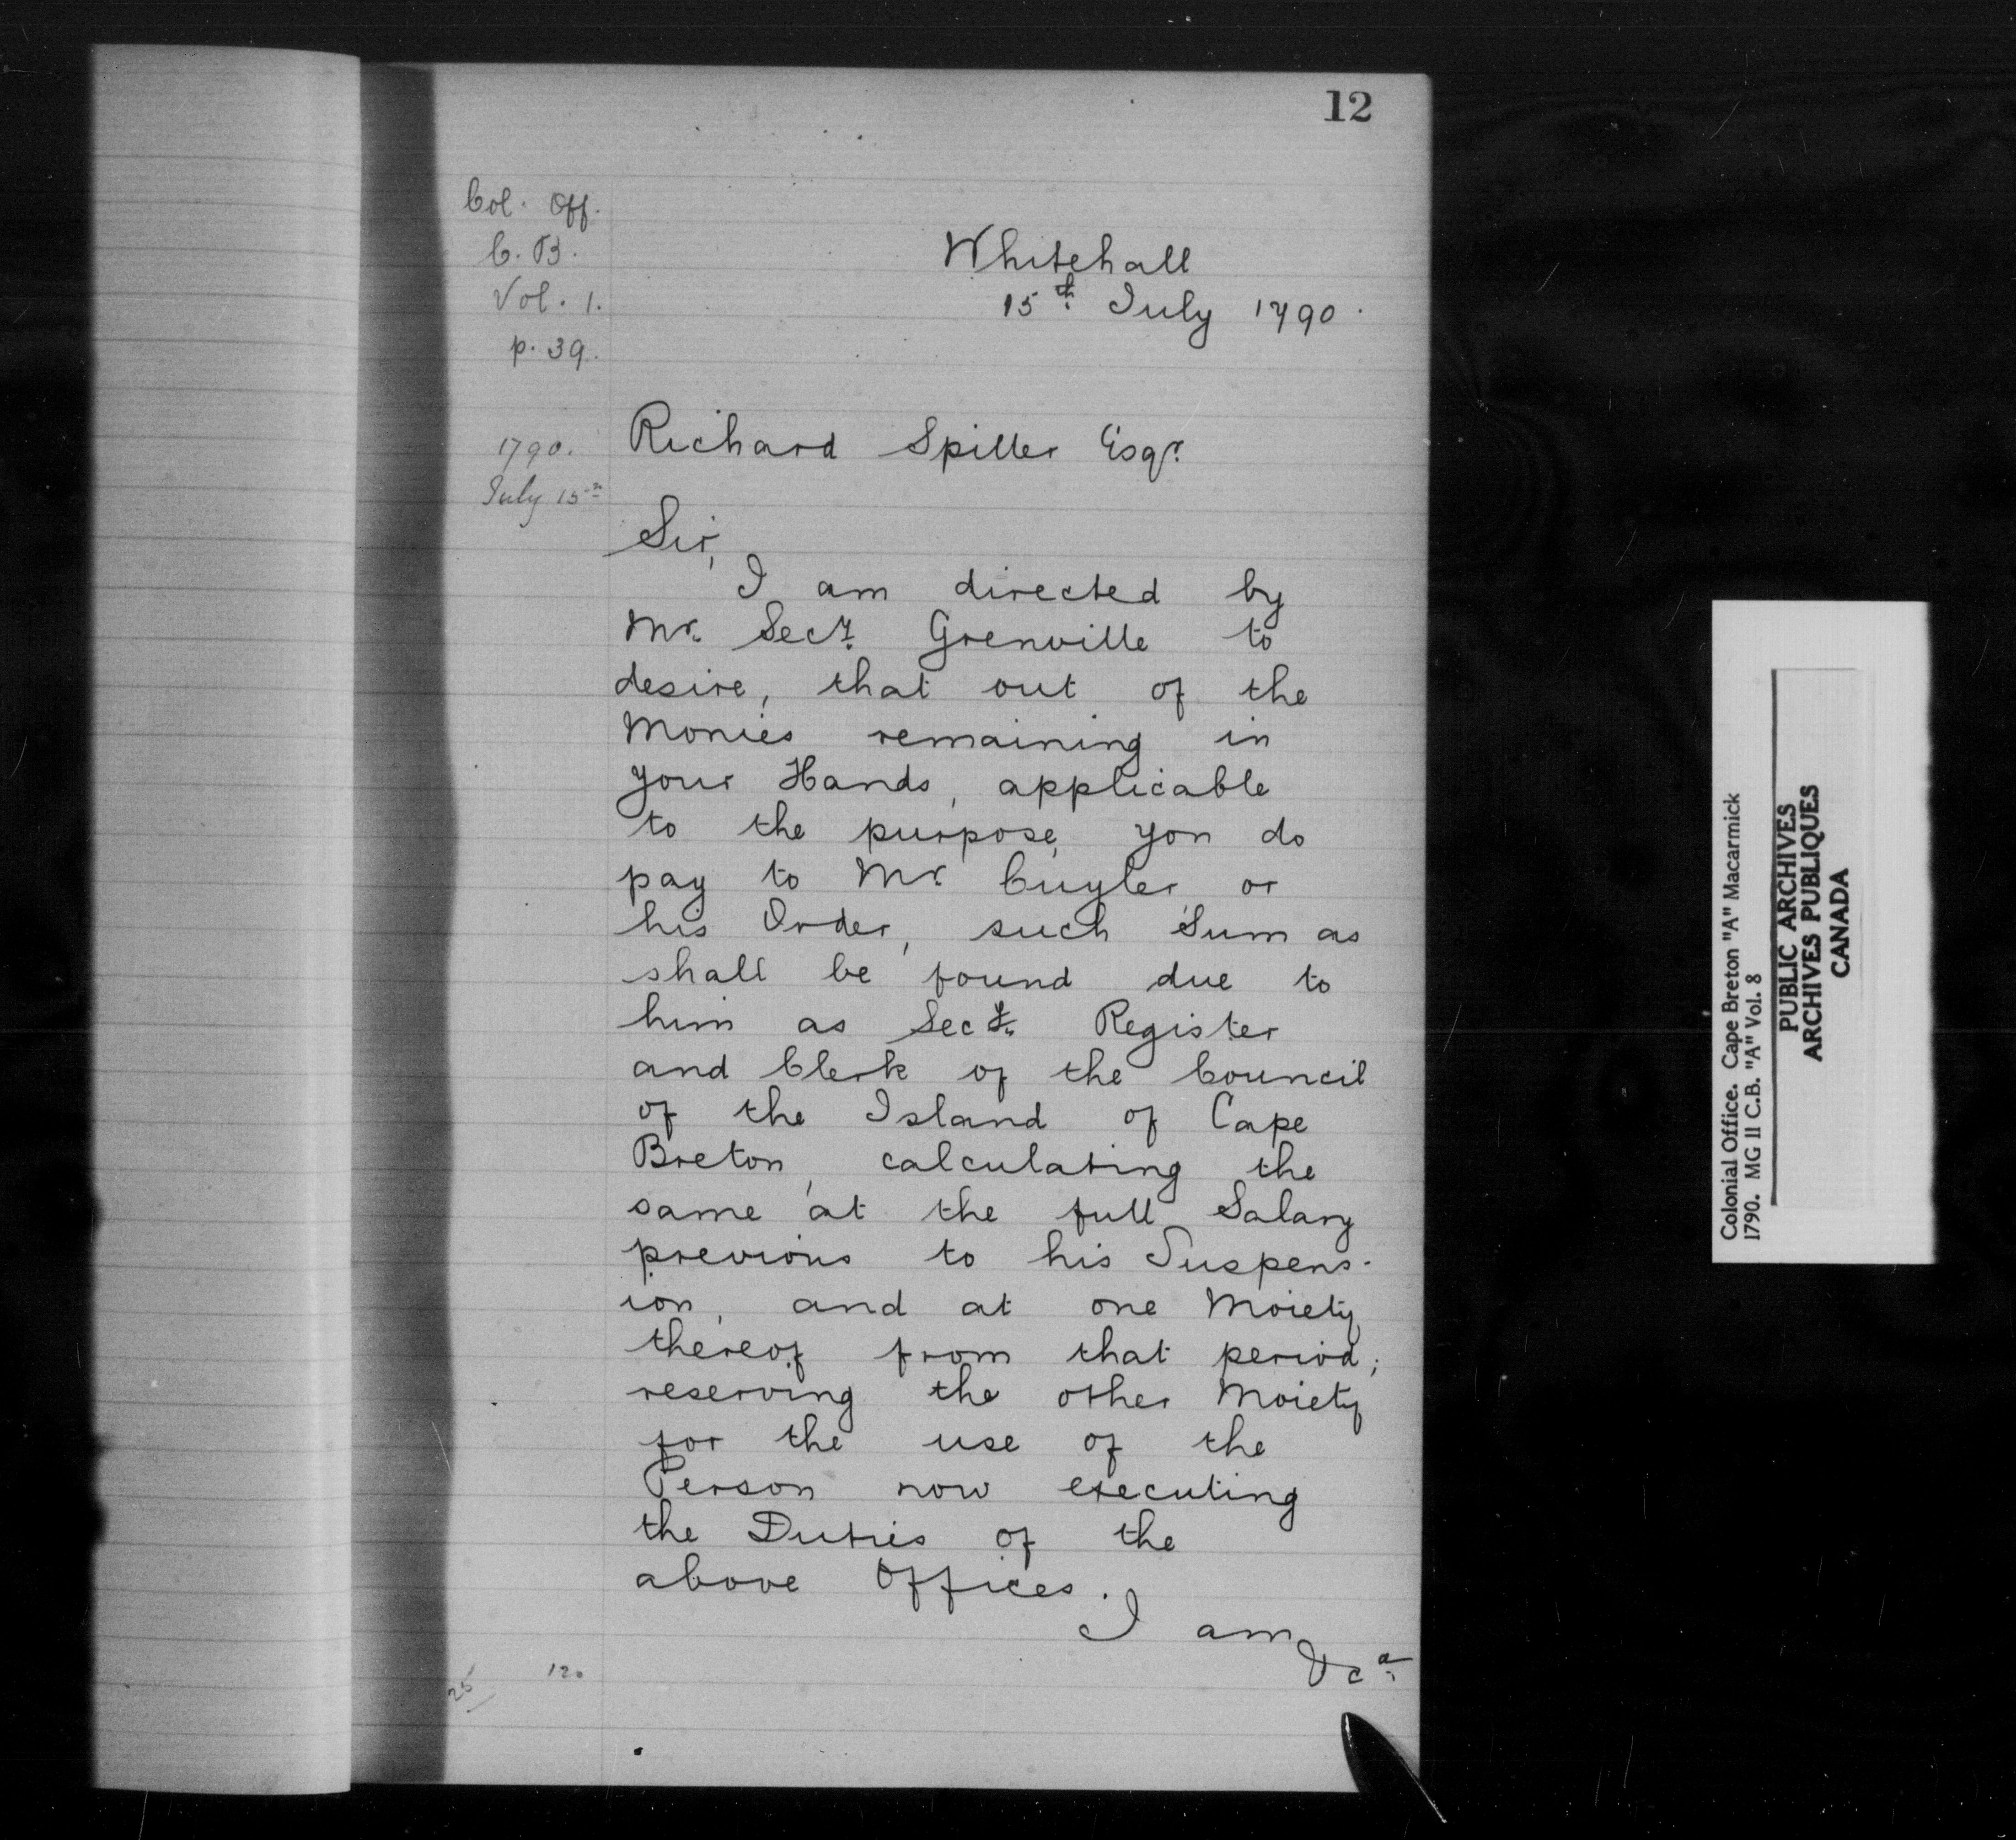 12
Col. Off.
C. B.
Vol. 1.
p. 39.
Whitehall
15th July 1790.
1790.
July 15th
Richard Spiller Esqr.
Sir,
I am directed by
Mr. Secy. Grenville to
desire, that out of the
Monies remaining in
your Hands, applicable
to the purpose, you do
pay to Mr. Cuyler, or
his Order, such Sum as
shall be found due to
him as Secy. Register
and Clerk of the Council
of the Island of Cape
Breton, calculating the
same at the full Salary
previous to his Suspens-
ion, and at one Moiety
thereof from that period;
reserving the other Moiety
for the use of the
Person now executing
the Duties of the
above Offices.
I am
&ca.
25 120
Colonial Office. Cape Breton "A" Macarmick
1790. MG 11 C.B. "A" Vol. 8
PUBLIC ARCHIVES
ARCHIVES PUBLIQUES
CANADA